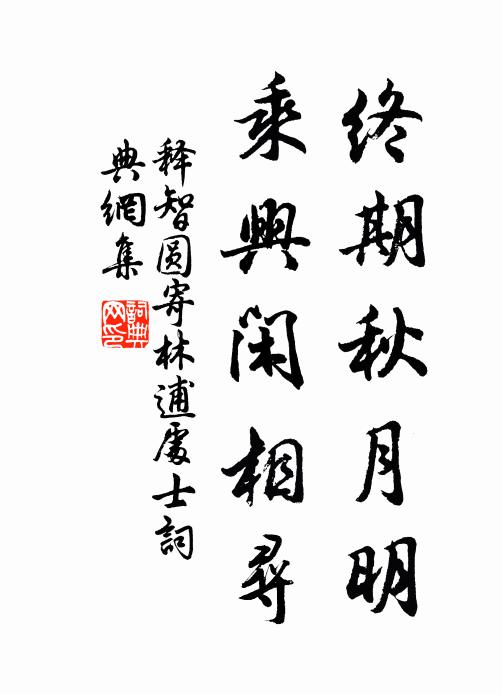 终期秋月明
乘興闲相尋
释智圆寄林逋處士詞
典網集
詞典
网印